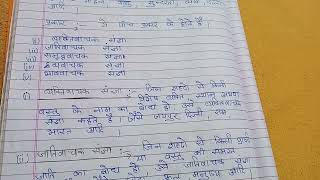 प्रकार :- ये पाँच प्रकार के होते हैं।
(i) व्यक्तिवाचक संज्ञा
(ii) जातिवाचक संज्ञा
(iii) समूहवाचक संज्ञा
(iv) द्रव्यवाचक संज्ञा
(v) भाववाचक संज्ञा
(i) व्यक्तिवाचक संज्ञा :- जिन शब्दों से किसी
व्यक्ति स्थान अथवा
वस्तु के नाम का बोध हो उसे व्यक्तिवाचक
संज्ञा कहते हैं। जैसे जयपुर दिल्ली राम
भारत आदि।
(ii) जातिवाचक संज्ञा :- जिन शब्दों से किसी प्राणी
या वस्तु की समस्त
जाति का बोध हो उसे जातिवाचक संज्ञा